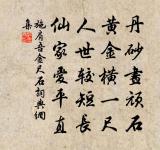 丹砂畫頑石
黃金橫一尺
人世較短長
仙家愛平直
施肩吾金尺石詞典網
集